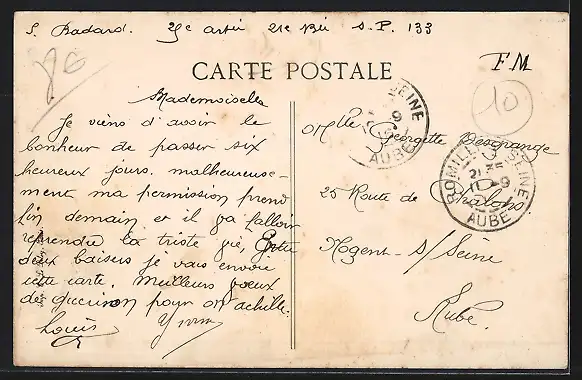 S. Badard. 25e artie 21e Bie S.P. 133
FM
CARTE POSTALE
10
Mademoiselle
Je viens d'avoir le
bonheur de passer six
heureux jours, malheureuse-
ment ma permission prend
fin demain et il va falloir
reprendre la triste vie, Entre
deux baisers je vais envoie
cette carte. Meilleurs voeux
de guerison pour Mr achille.
Louis
Melle Georgette Desgrange
25 Route de Chalons
Nogent s/Seine
Aube.
SEINE
9
AUBE
ROMILLY S SEINE
21
AUBE